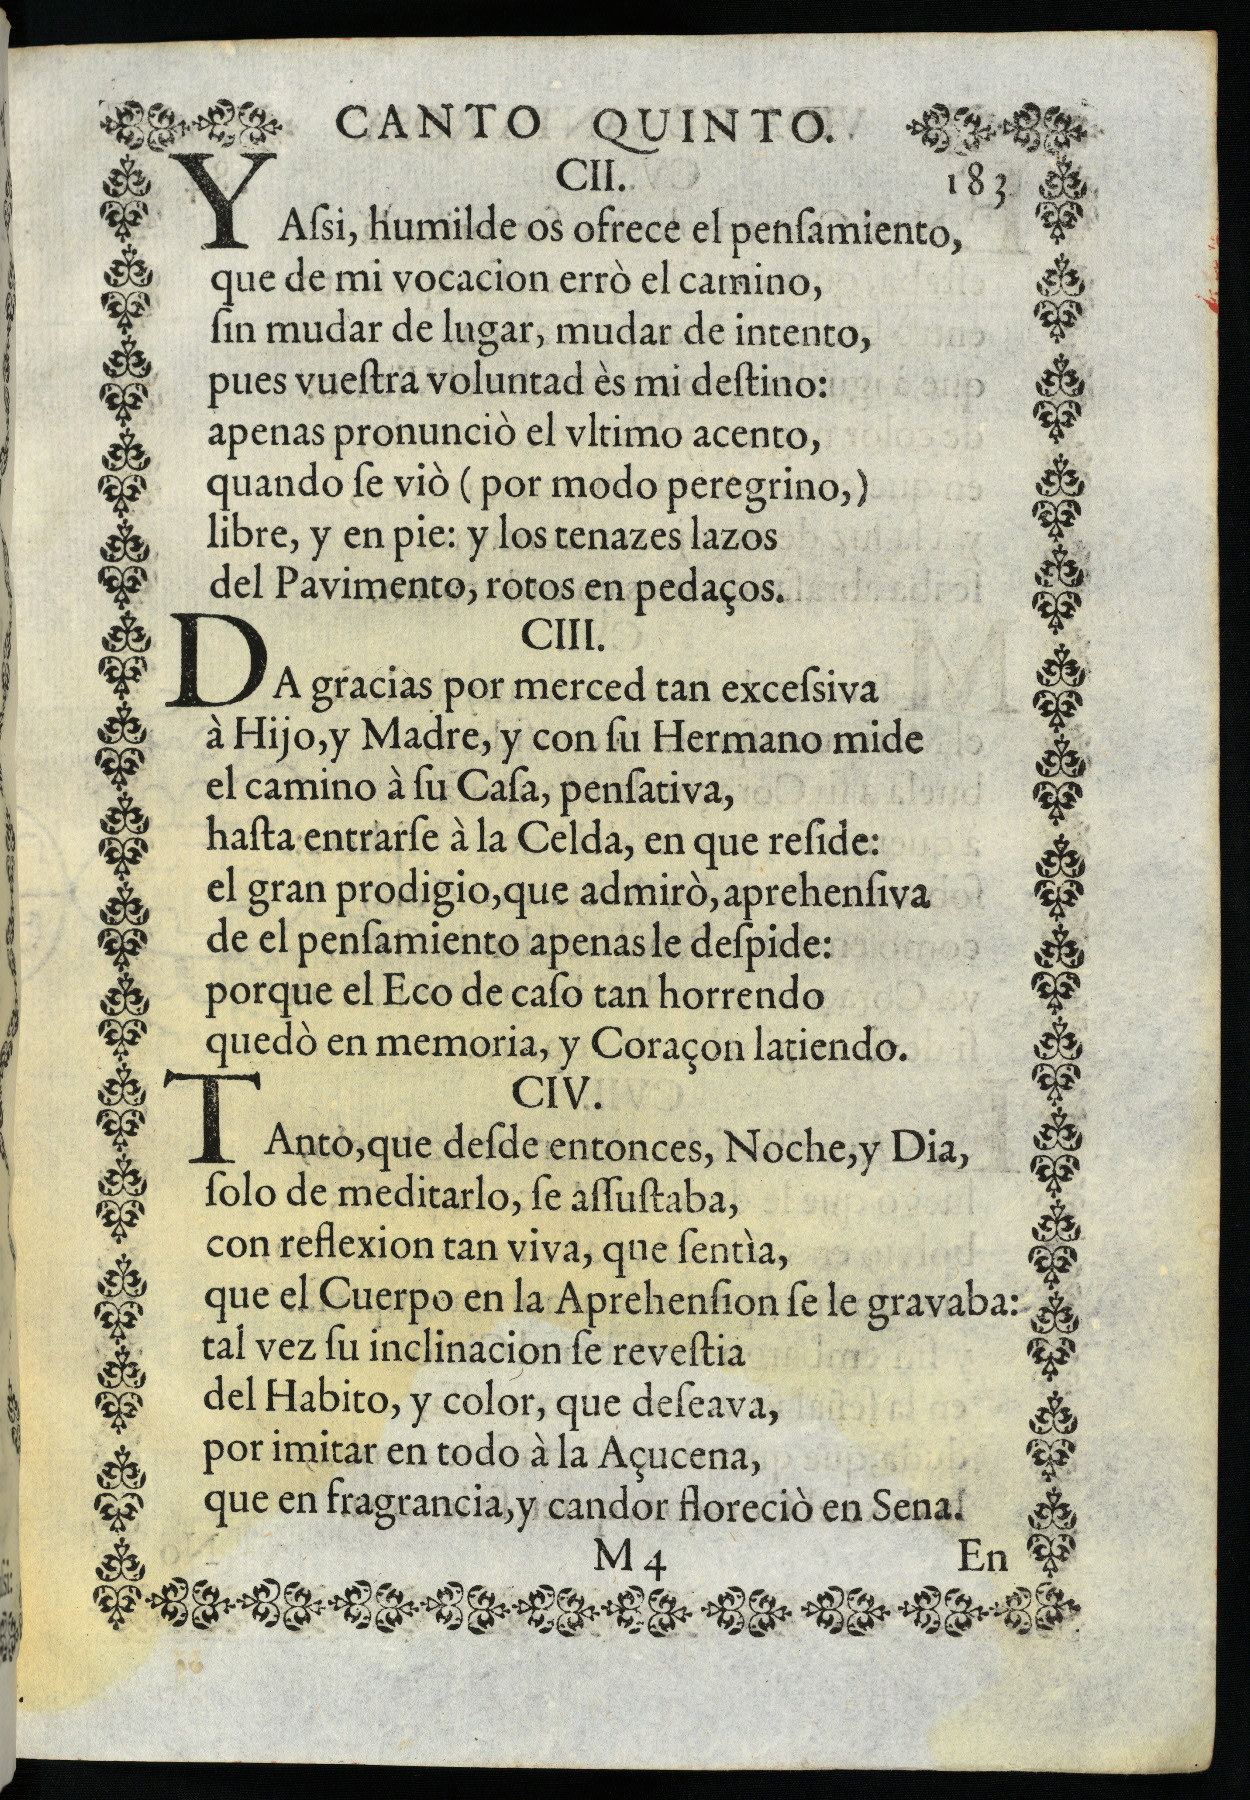 CANTO QUINTO.
CII.
183
YAſsi, humilde os ofrece el penſamiento,
que de mi vocacion errò el camino,
ſin mudar de lugar, mudar de intento,
pues vueſtra voluntad ès mi deſtino:
apenas pronunciò el vltimo acento,
quando ſe viò ( por modo peregrino, )
libre, y en pie: y los tenazes lazos
del Pavimento, rotos en pedaços.
CIII.
DA gracias por merced tan exceſsiva
à Hijo, y Madre, y con ſu Hermano mide
el camino à ſu Caſa, penſativa,
haſta entrarſe à la Celda, en que reſide:
el gran prodigio, que admirò, aprehenſiva
de el penſamiento apenas le deſpide:
porque el Eco de caſo tan horrendo
quedò en memoria, y Coraçon latiendo.
CIV.
TAnto, que deſde entonces, Noche, y Dia,
ſolo de meditarlo, ſe aſſuſtaba,
con reflexion tan viva, que ſentìa,
que el Cuerpo en la Aprehenſion ſe le gravaba:
tal vez ſu inclinacion ſe reveſtia
del Habito, y color, que deſeava,
por imitar en todo à la Açucena,
que en fragrancia, y candor floreciò en Sena.
M 4
En